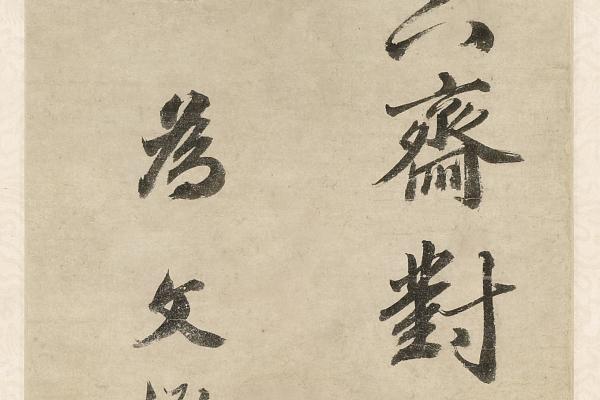 齋對
為文